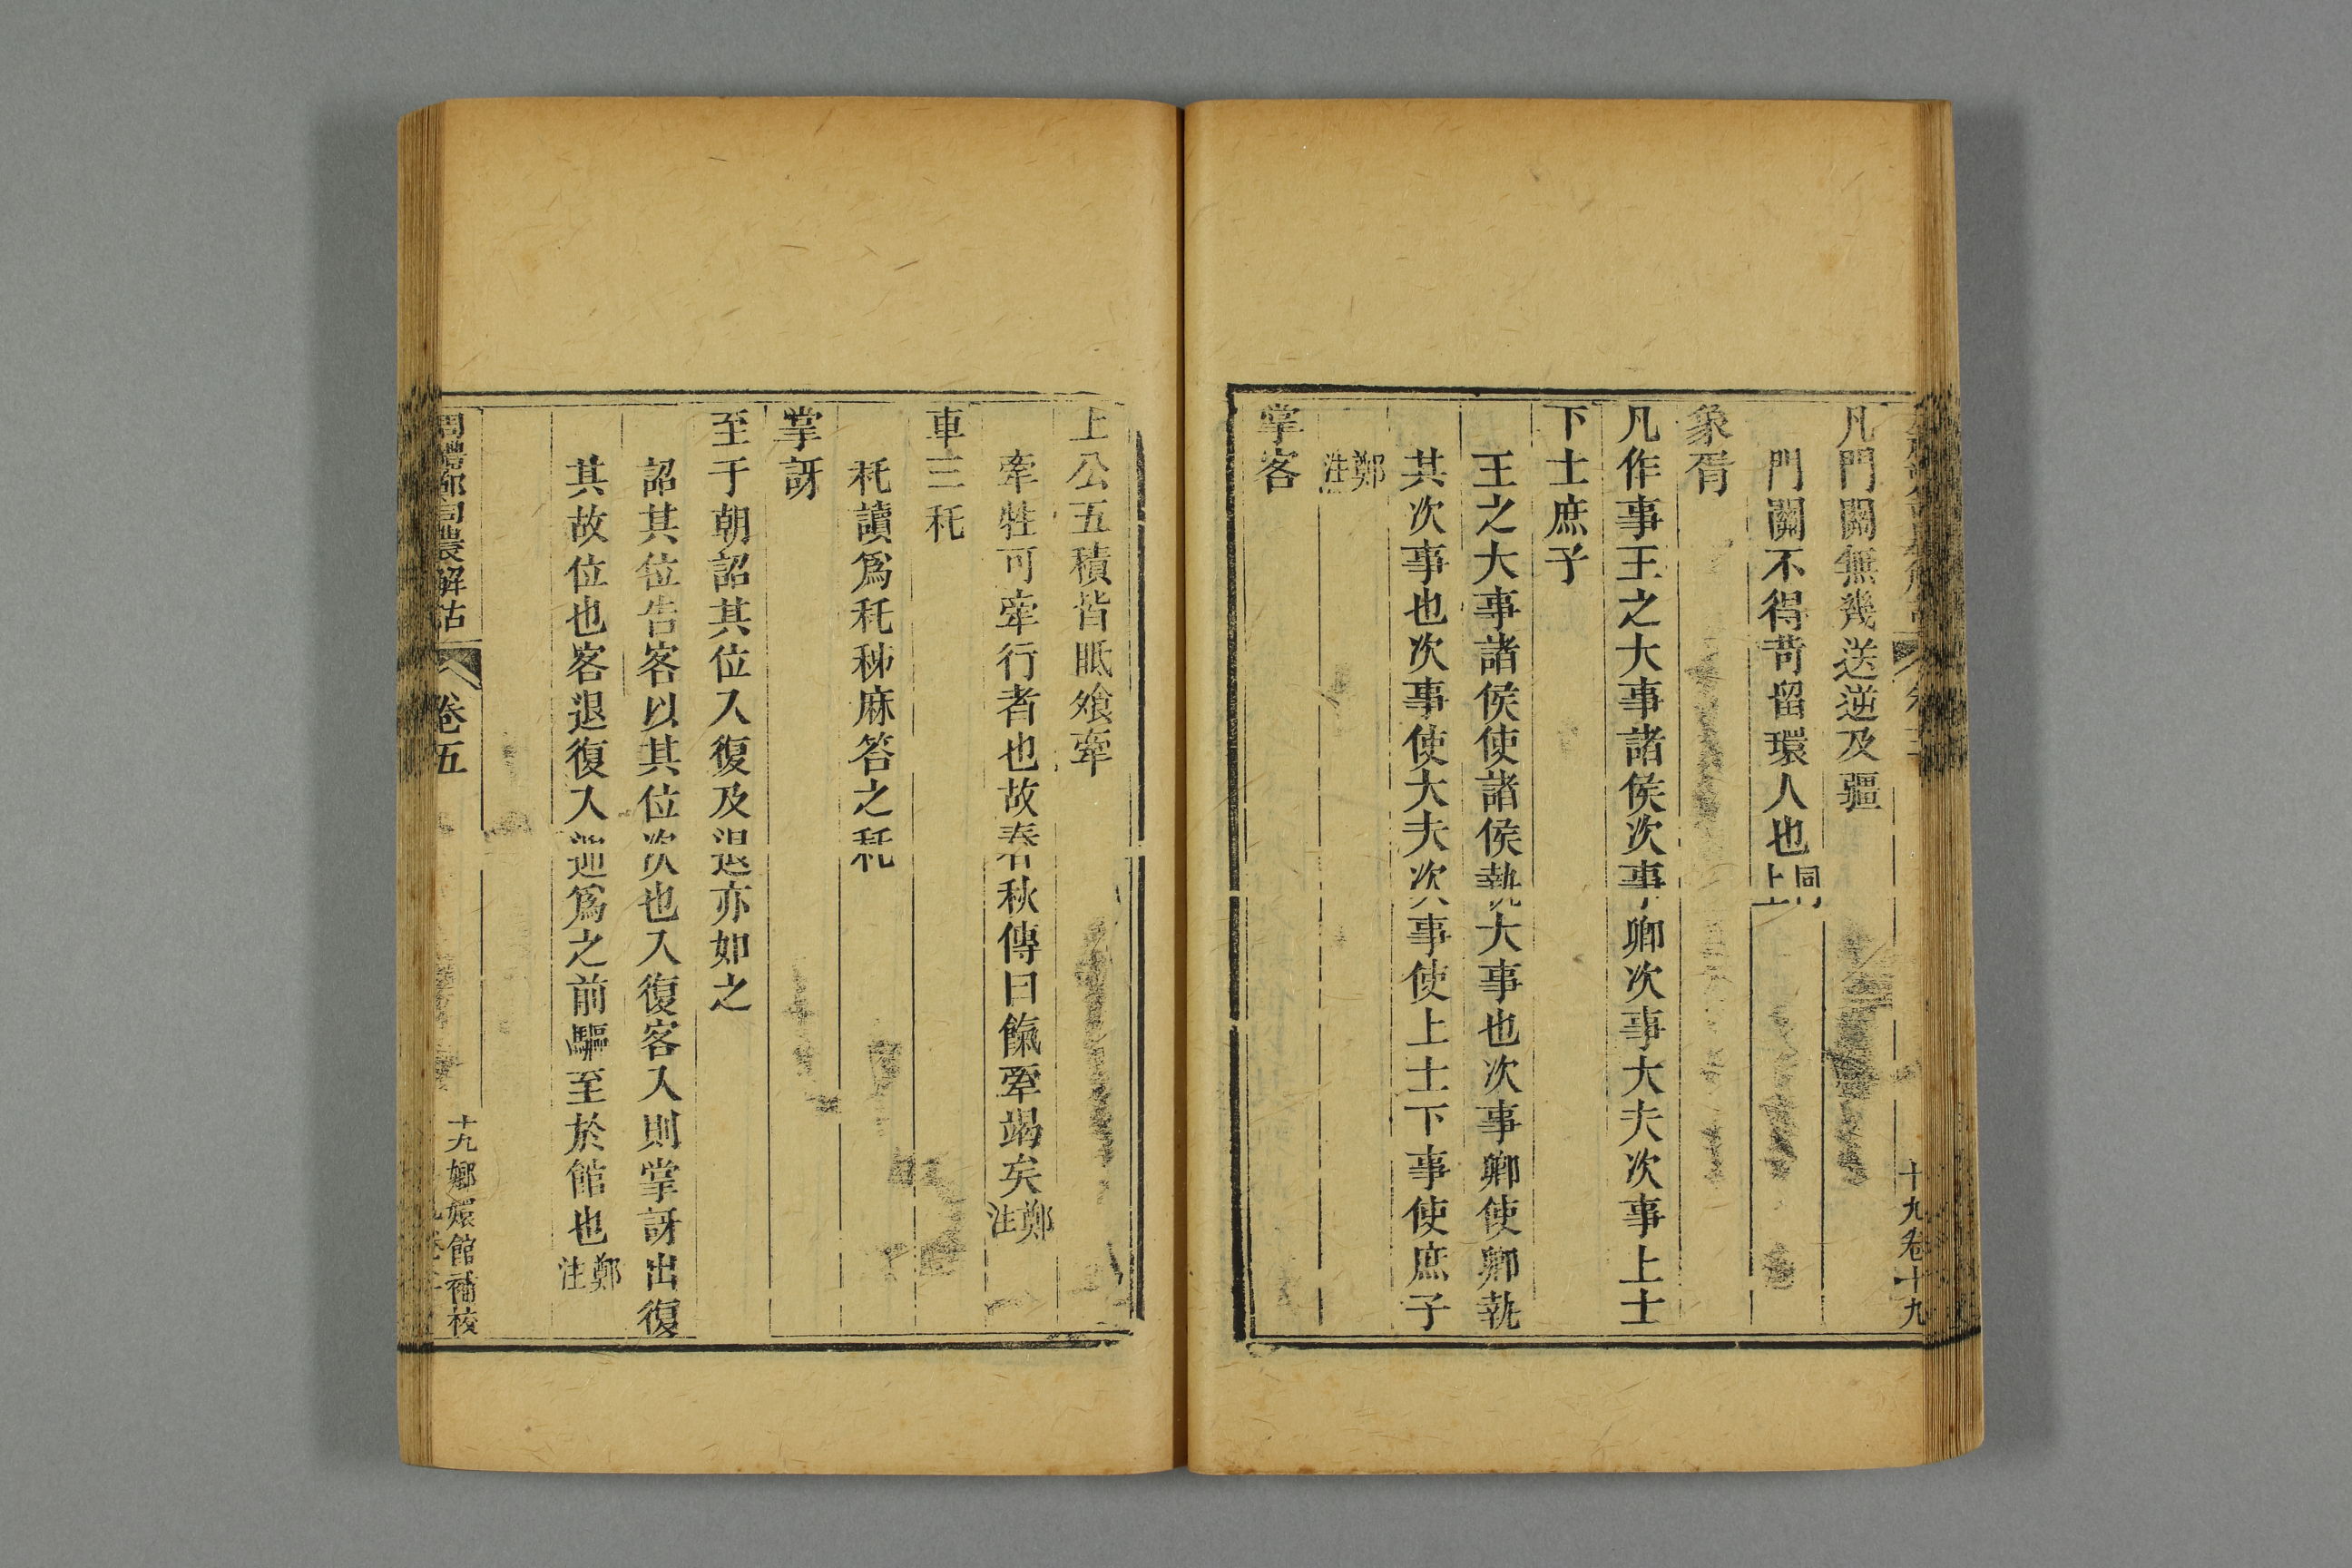 凡門關無幾送逆及疆
門關不得苛留環人也同上
象胥
凡作事王之大事諸侯次事卿次事大夫次事上士
下士庶子
王之大事諸侯使諸侯執大事也次事卿使卿執
其次事也次事使大夫次事使上士下事使庶子
鄭注
掌客
上公五積皆眡飧牽
牽牲可牽行者也故春秋傳曰餼牽竭矣鄭注
車三秅
秅讀爲秅秭麻答之秅
掌訝
至于朝詔其位入復及退亦如之
詔其位告客以其位次也入復客入則掌訝出復
其故位也客退復入迎爲之前驅至於館也鄭注
周禮鄭司農解詁 卷五 十九 嫏嬛館補校